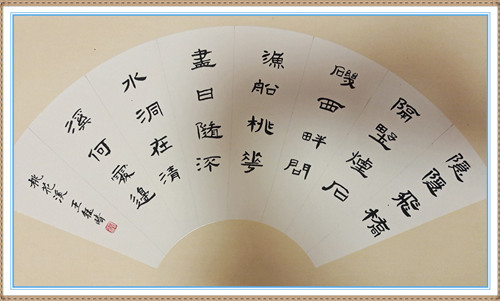 隱隱飛橋
隔野煙石
磯西畔問
漁船桃華
盡日隨流
水洞在清
溪何處邊
桃花溪 王